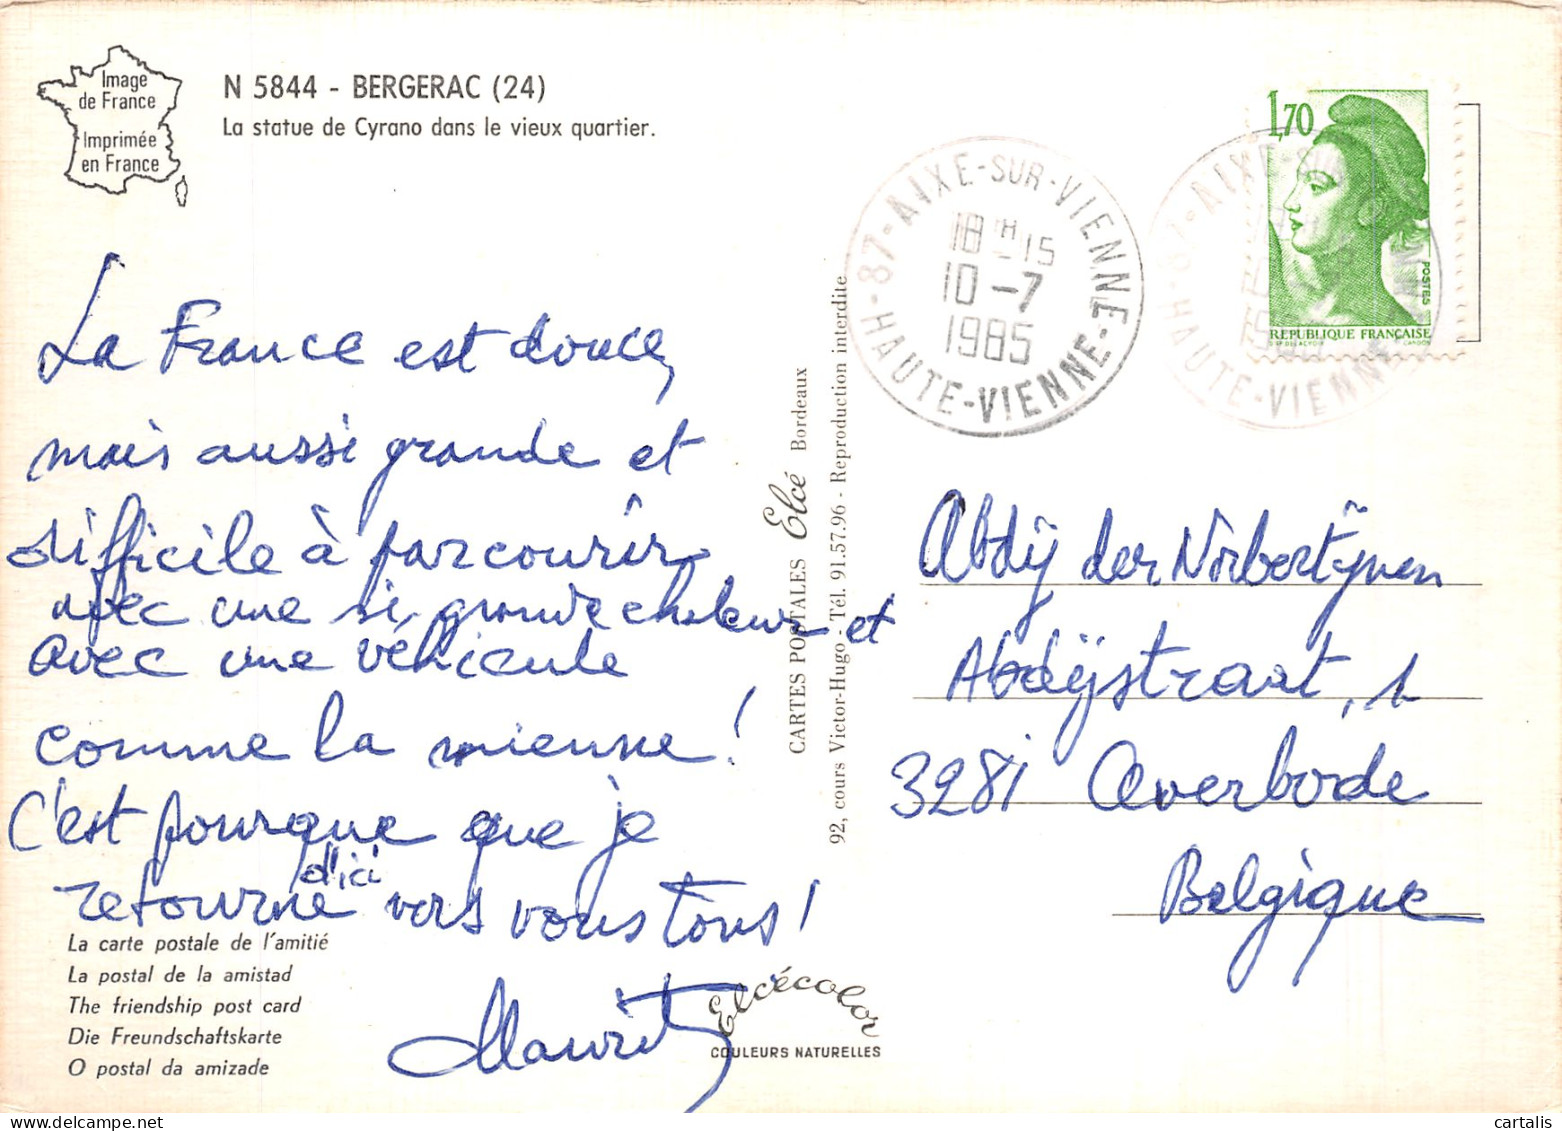 Image
de France
Imprimée
en France
N 5844 - BERGERAC (24)
La statue de Cyrano dans le vieux quartier.
La France est douce,
mais aussi grande et
difficile à parcourir
avec une si grande chaleur et
avec une véhicule
comme la mienne !
C'est pourque que je
retourne d'ici vers vous tous !
Maurits
La carte postale de l'amitié
La postal de la amistad
The friendship post card
Die Freundschaftskarte
O postal da amizade
Elcécolor
COULEURS NATURELLES
CARTES POSTALES Elcé Bordeaux
92, cours Victor-Hugo - Tél. 91.57.96 - Reproduction interdite
87-AIXE-SUR-VIENNE
18H15
10-7
1985
HAUTE-VIENNE
1,70
POSTES
REPUBLIQUE FRANÇAISE
87-AIXE-SUR-VIENNE
HAUTE-VIENNE
Abdÿ der Norbertÿnen
Abdÿstraat, 1
3281 Averbode
Belgique
cartalis